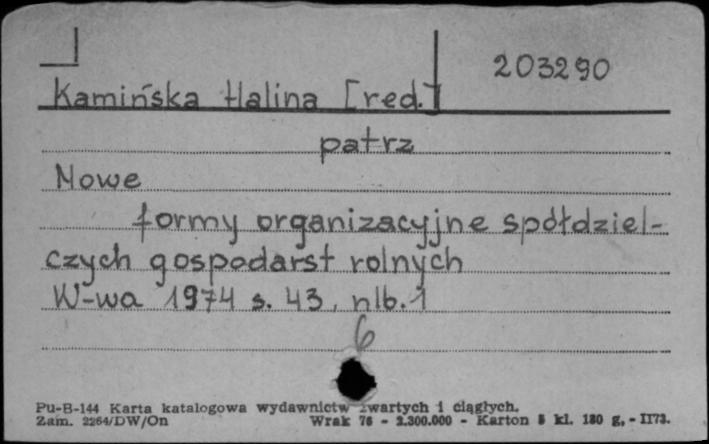 203290
Kamińska Halina [red.]
patrz
Nowe
formy organizacyjne spółdziel-
czych gospodarst rolnych
W-wa 1974 s. 43, nlb. 1
6
Pu-B-144 Karta katalogowa wydawnictw zwartych i ciągłych.
Zam. 2264/DW/On Wrak 76 - 2.300.000 - Karton 5 kl. 180 g, - II73.